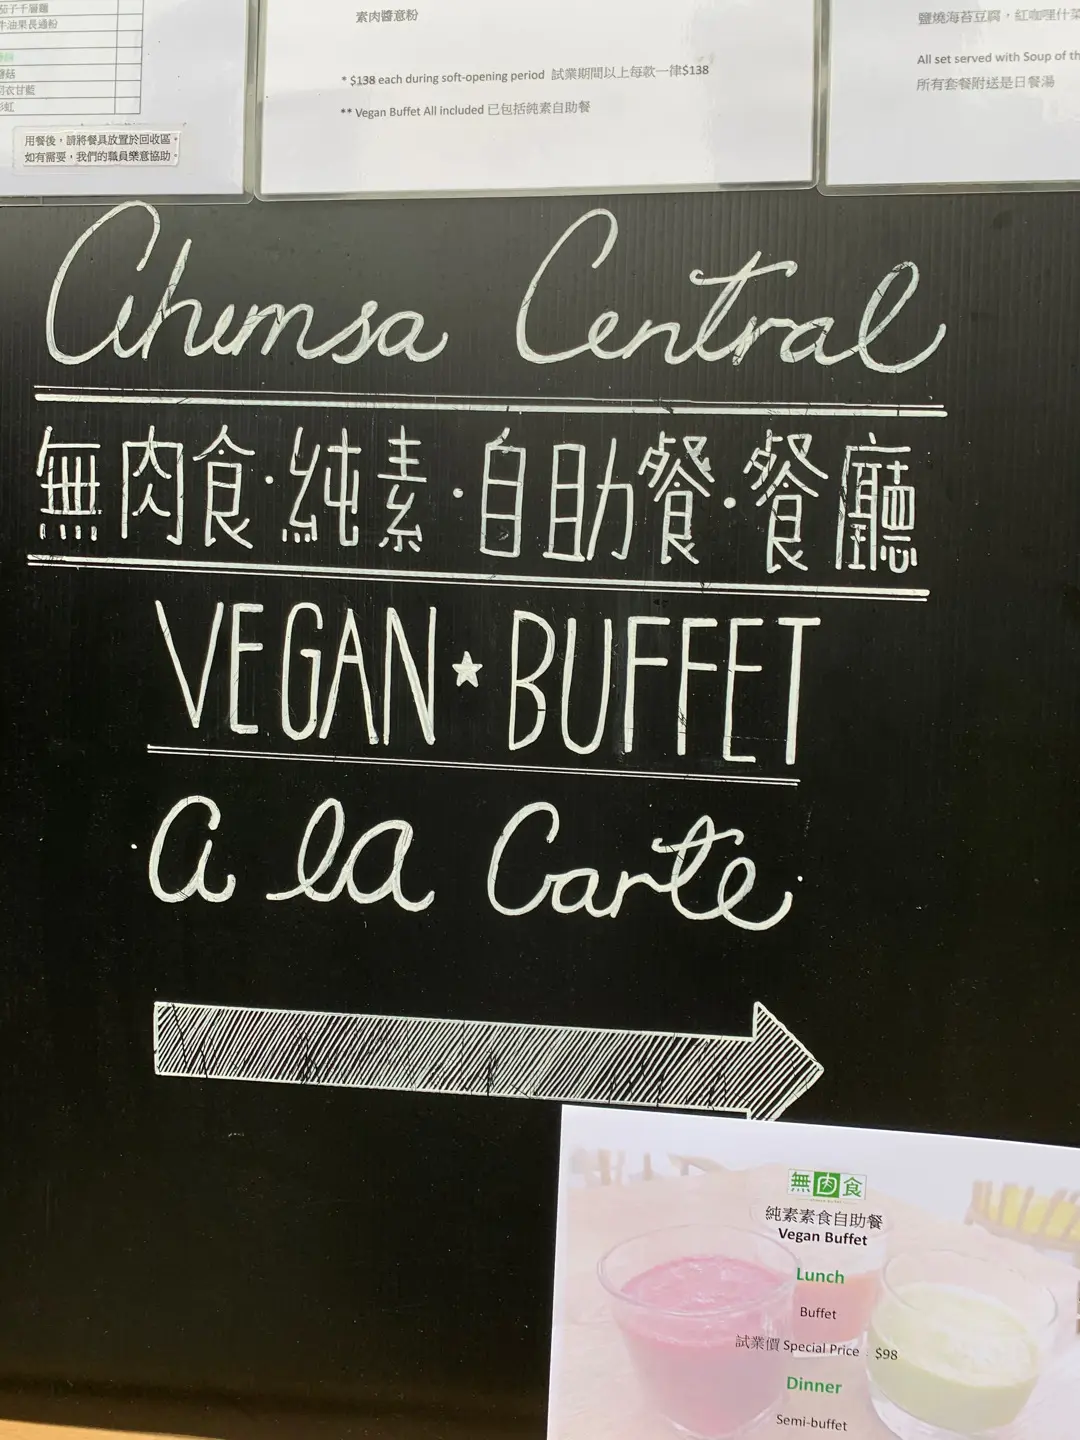 茄子千層麵
牛油果長通粉
蘑菇
羽衣甘藍
彩虹
用餐後，請將餐具放置於回收區。
如有需要，我們的職員樂意協助。
素肉醬意粉
* $138 each during soft-opening period 試業期間以上每款一律$138
** Vegan Buffet All included 已包括純素自助餐
鹽燒海苔豆腐，紅咖哩什菜
All set served with Soup of th
所有套餐附送是日餐湯
Ahimsa Central
無肉食·純素·自助餐·餐廳
VEGAN ★ BUFFET
A la Carte
無肉食
純素素食自助餐
Vegan Buffet
Lunch
Buffet
試業價 Special Price : $98
Dinner
Semi-buffet